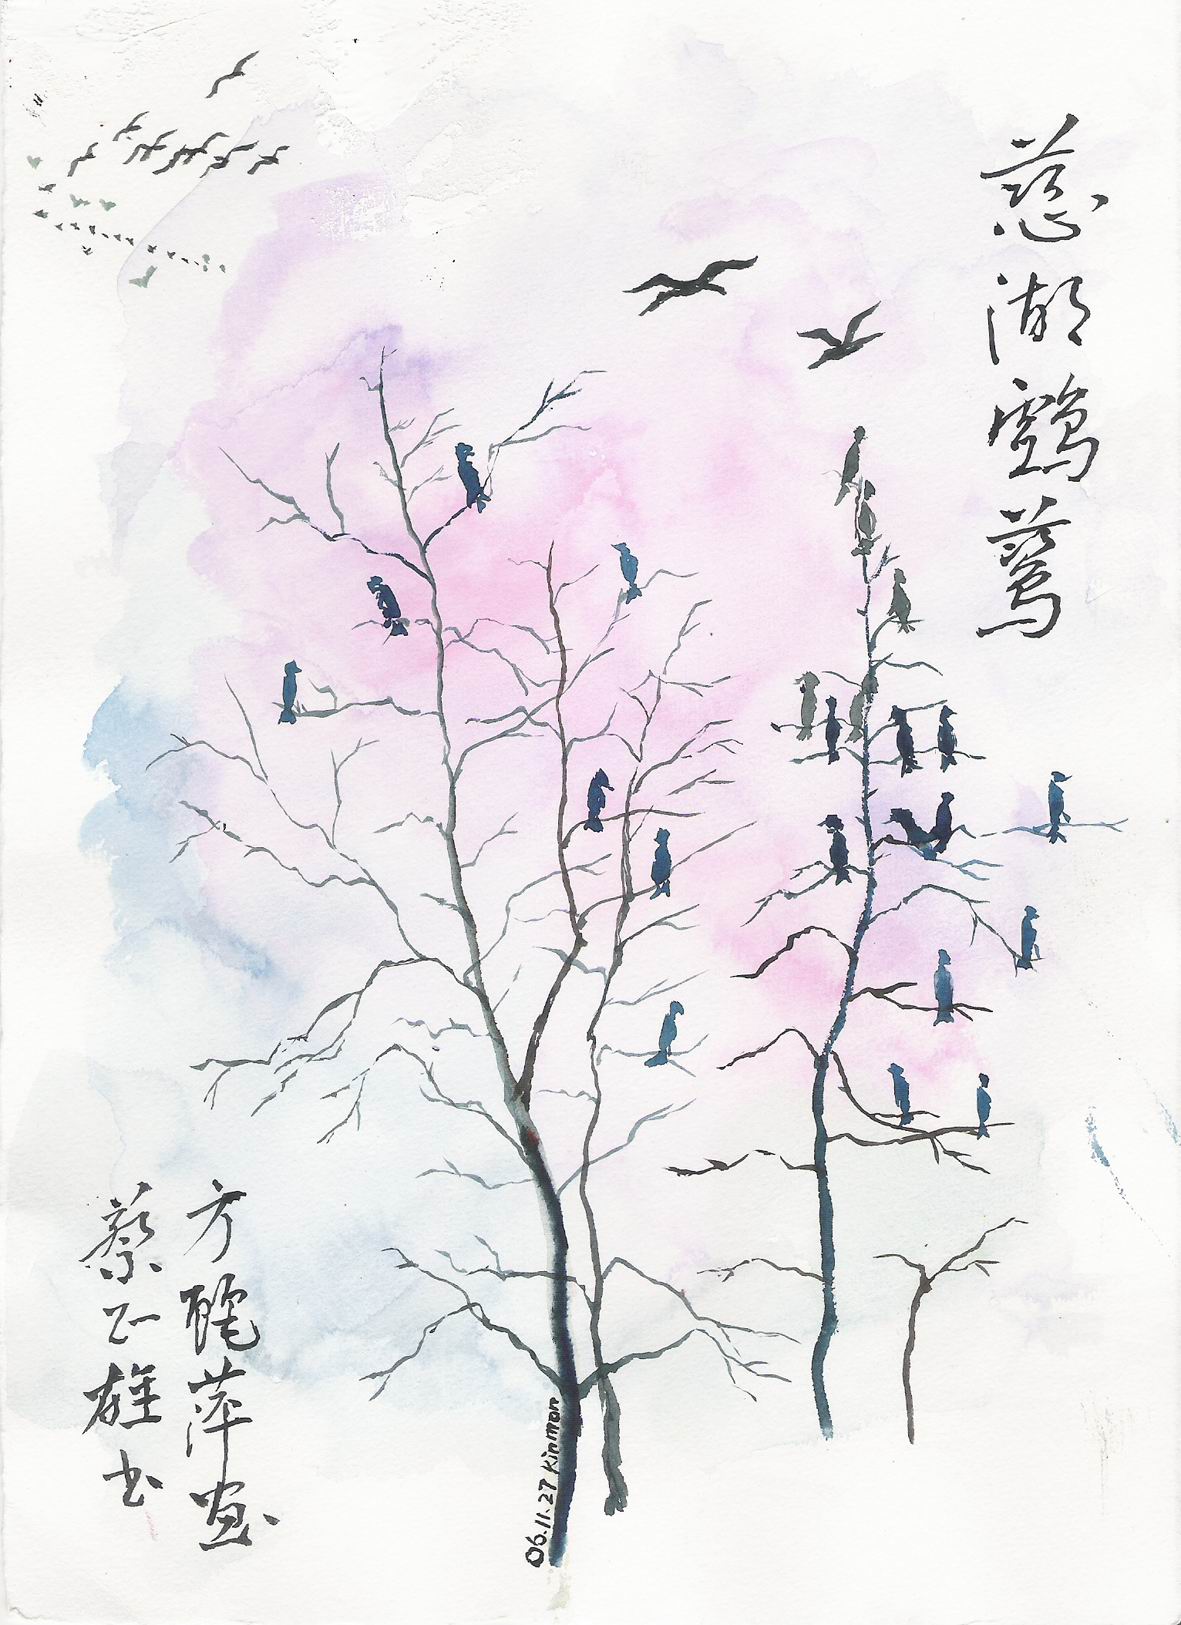 慈湖鸕鶿
方萍畫
蔡正雄书
06.11.27 Kinmen